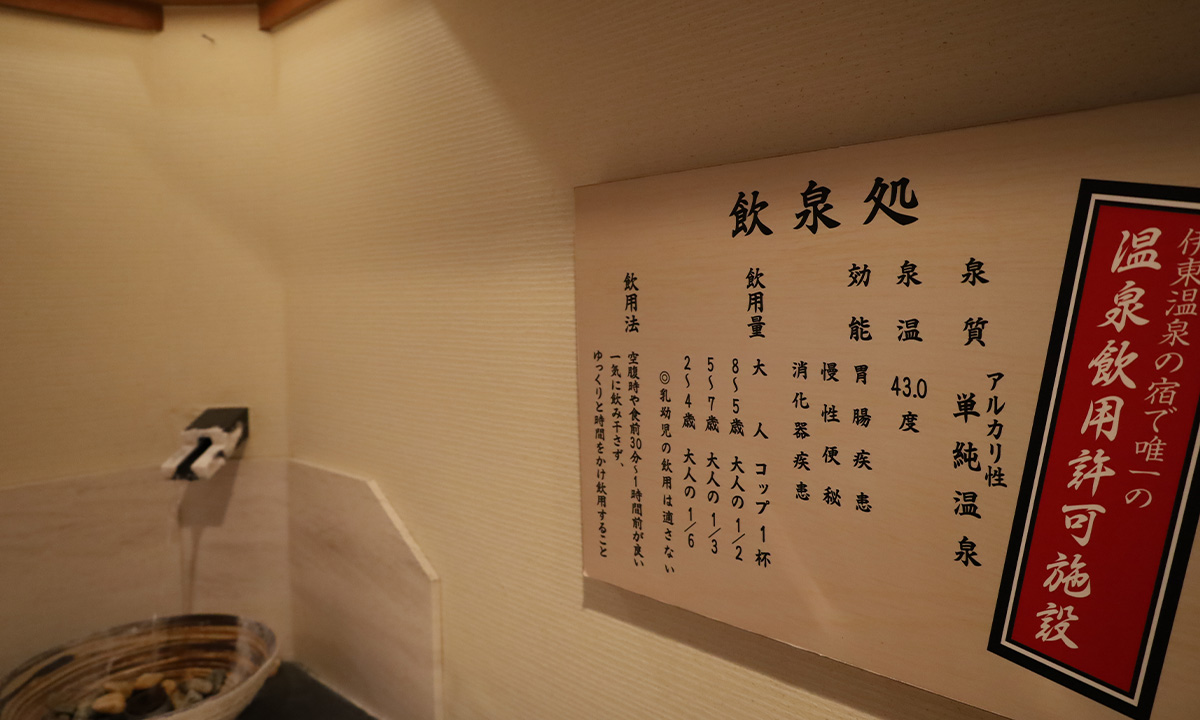 伊東温泉の宿で唯一の
温泉飲用許可施設
飲泉処
泉質 アルカリ性
単純温泉
泉温 43.0度
効能 胃腸疾患
慢性便秘
消化器疾患
飲用量 大人 コップ1杯
8〜5歳 大人の1/2
5〜7歳 大人の1/3
2〜4歳 大人の1/6
◎乳幼児の飲用は適さない
飲用法 空腹時や食前30分〜1時間前が良い
一気に飲み干さず、
ゆっくりと時間をかけ飲用すること